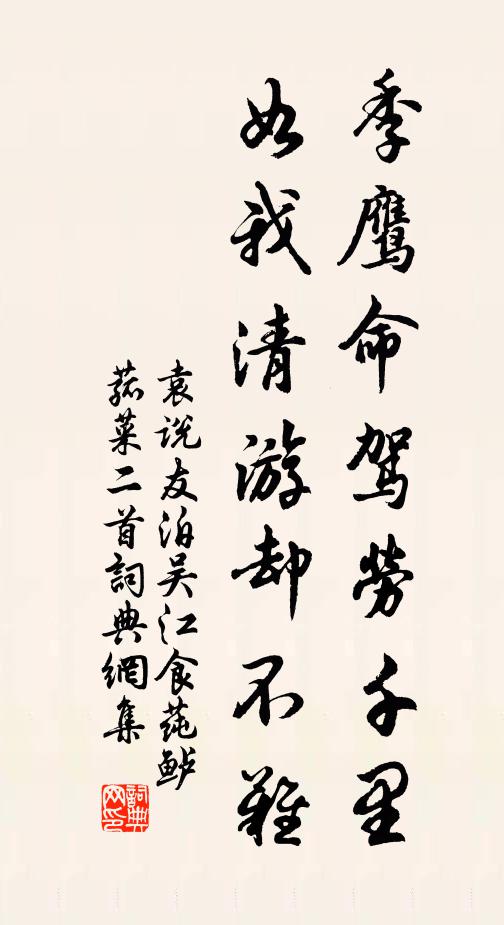 季鹰命驾劳千里
如我清游却不難
袁说友泊吴江食莼鲈
菰菜二首詞典網集
詞典网印